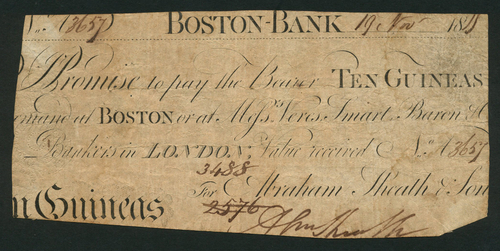 No. A3657 BOSTON-BANK 19 Nov 18
Promise to pay the Bearer TEN GUINEAS
emand at BOSTON or at Mess.rs Veres Smart Baron &
Bankers in LONDON; Value received No. A3657
3488
For Abraham Sheath & Son
n Guineas 2576